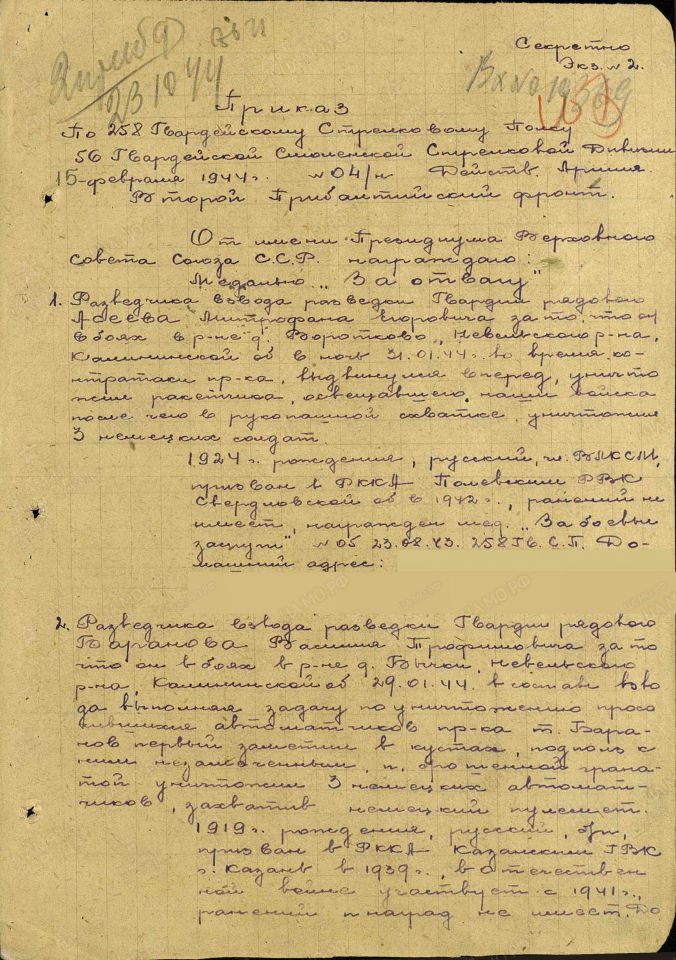 231044
Секретно
Экз. N 2.
Вх N0
Приказ
По 258 Гвардейскому Стрелковому Полку
56 Гвардейской Смоленской Стрелковой Дивизии
15-февраля 1944 г. N 04/н Действ. Армия.
Второй Прибалтийский фронт.
От имени Президиума Верховного
Совета Союза С.С.Р. награждаю:
Медалью „За отвагу"
1. Разведчика взвода разведки Гвардии рядового
Митрофана Егоровича за то, что он
в боях в р-не д. Воротково, Невельского р-на,
Калининской об в ночь 31.01.44 г. во время ко-
нтратаки пр-ка, выдвинулся вперед, уничто
жил ракетчика, освещавшего наши войска
после чего в рукопашной схватке уничтожил
3 немецких солдат.
1924 г. рождения, русский, чл. ВЛКСМ,
призван в РККА Полевским РВК
Свердловской об в 1942 г., ранений не
имеет, награжден мед. „За боевые
заслуги" N 05 23.08.43. 258 Гв. С.П. До-
машний адрес:
2. Разведчика взвода разведки Гвардии рядового
Баранова Василия Трофимовича за то
что он в боях в р-не д. Бычки, Невельского
р-на, Калининской об 29.01.44. в составе взво
да выполняя задачу по уничтожению просо
чившихся автоматчиков пр-ка т. Бара-
нов первый заметил в кустах, подполз к
ним незамеченным, и брошенной грана-
той уничтожил 3 немецких автомат-
чиков, захватив немецкий пулемет.
1919 г. рождения, русский, б/п,
призван в РККА Казанским ГВК
г. Казань в 1939 г., в отечествен
ной войне участвует с 1941 г.,
ранений и наград не имеет. До